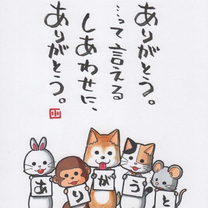 ありがとう。
…って言える
しあわせに、
ありがとう。
ありがとう